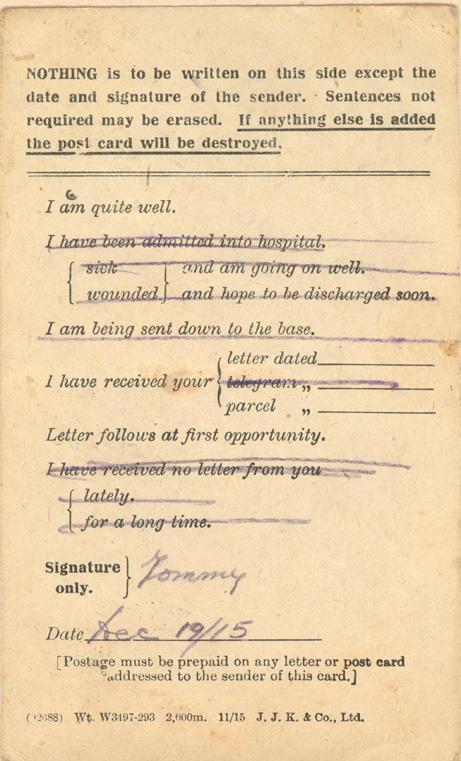 NOTHING is to be written on this side except the
date and signature of the sender. Sentences not
required may be erased. If anything else is added
the post card will be destroyed.
I am quite well.
I have been admitted into hospital.
sick and am going on well.
wounded and hope to be discharged soon.
I am being sent down to the base.
letter dated
I have received your telegram „
parcel „
Letter follows at first opportunity.
I have received no letter from you
lately.
for a long time.
Signature only. Tommy
Date Dec 19/15
[Postage must be prepaid on any letter or post card
addressed to the sender of this card.]
Wt. W3497-293 2,000m. 11/15 J. J. K. & Co., Ltd.